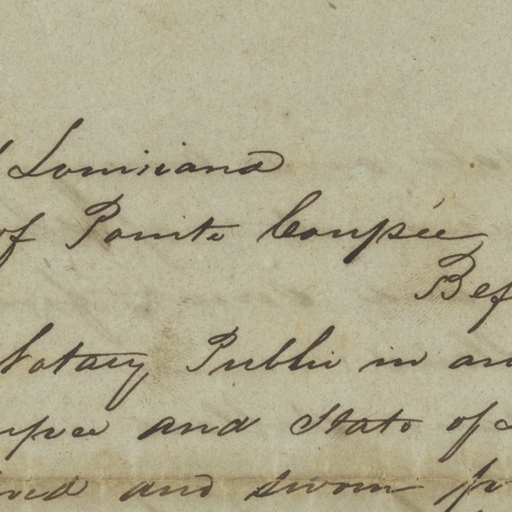 Louisiana
of Pointe Coupée
Bef
Notary Public in an
upee and State of
and sworn